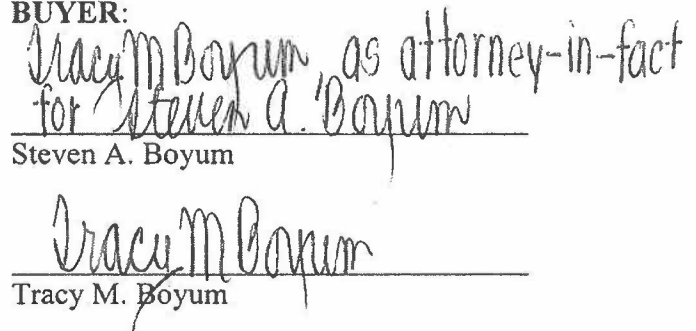 BUYER:
Tracy M Boyum, as attorney-in-fact
for Steven A. Boyum
Steven A. Boyum
Tracy M Boyum
Tracy M. Boyum